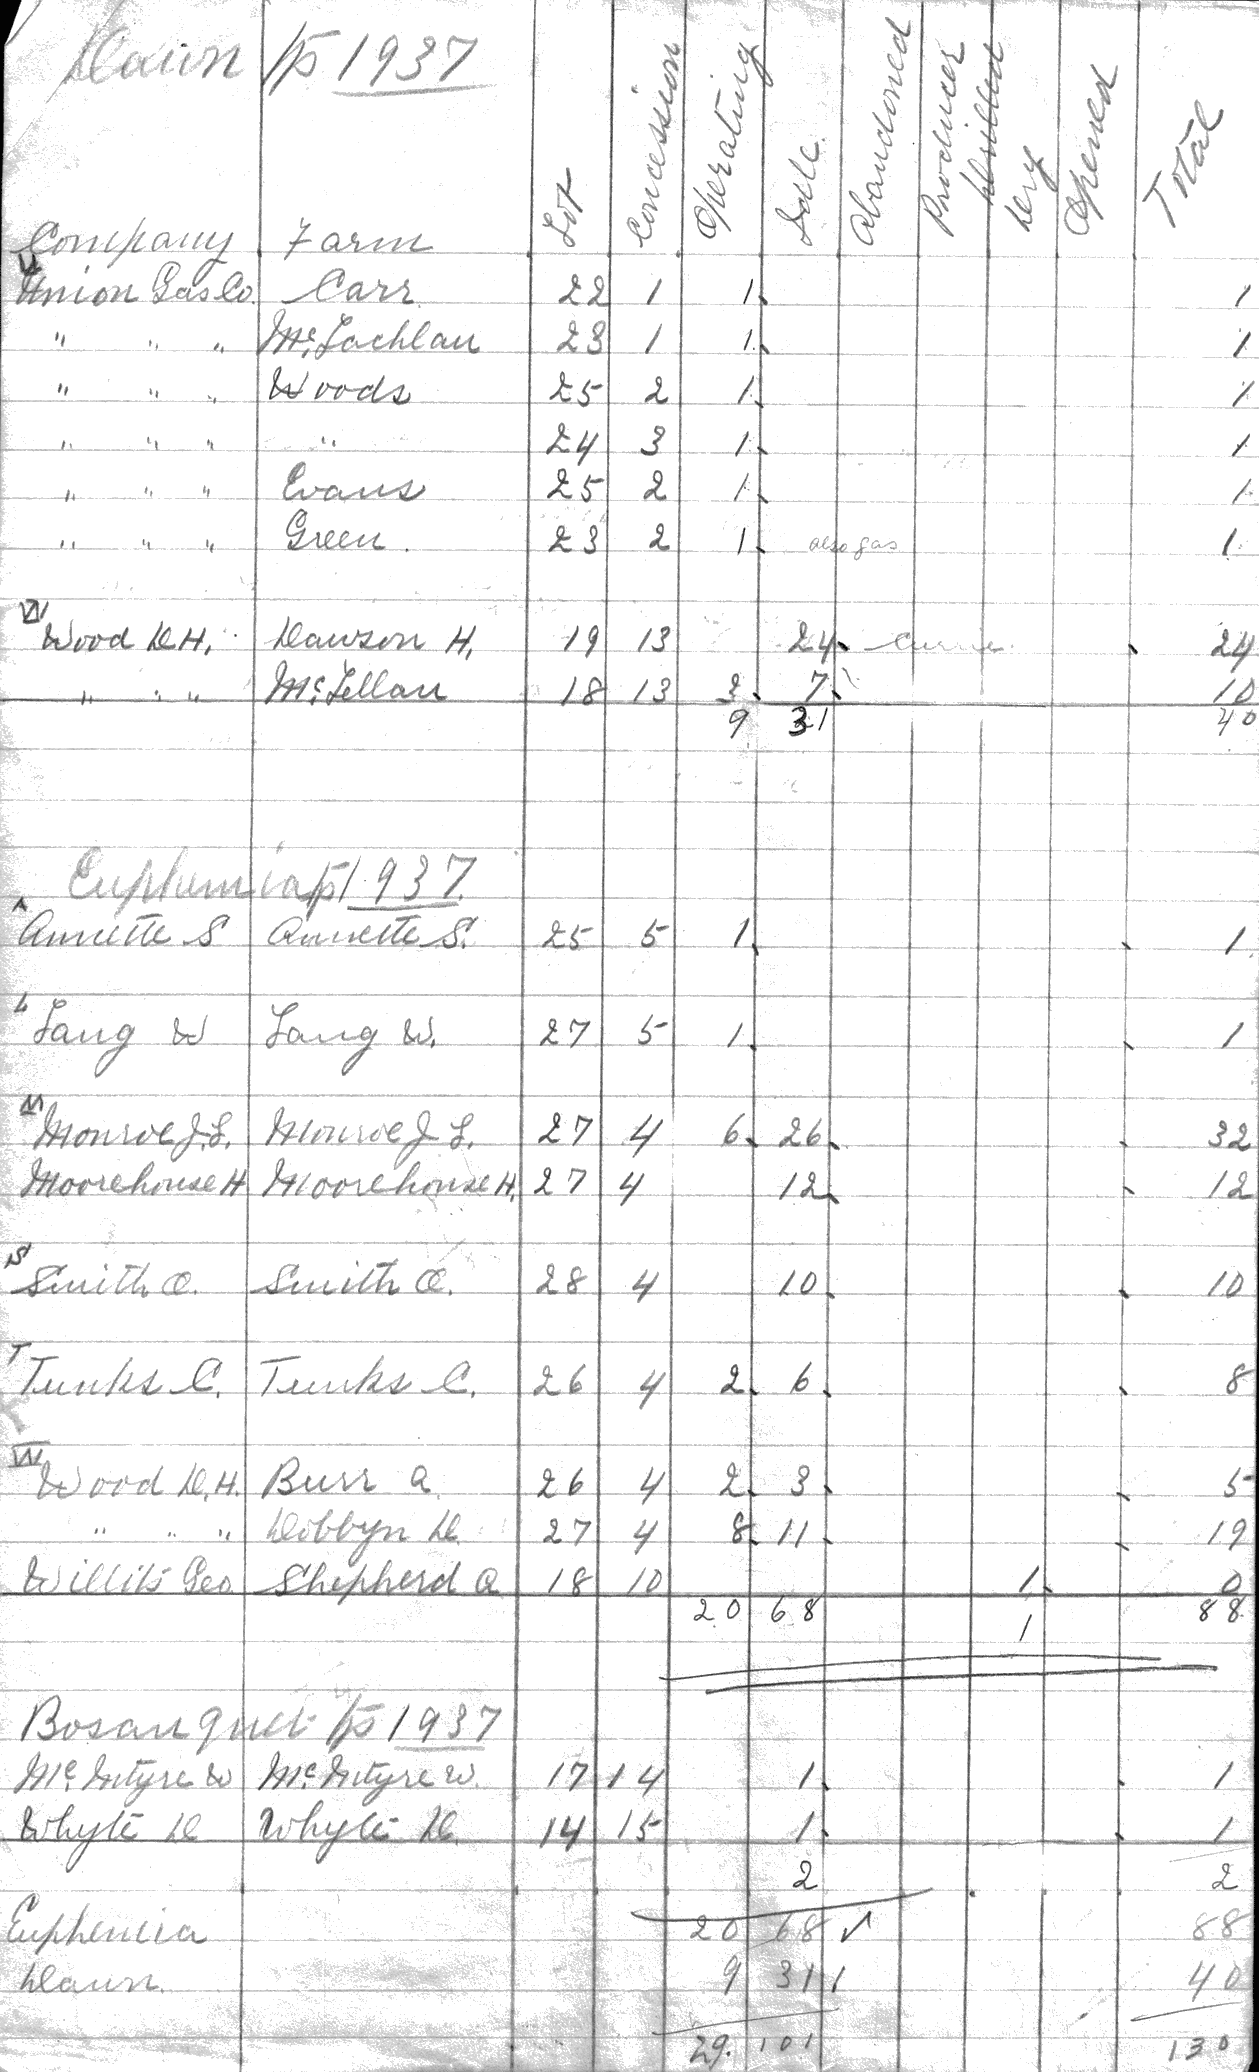 Dawn Tp 1937
Company Farm Lot Concession Operating Idle Abandoned Producer Drilled Dry Opened Total
U
Union Gas Co. Carr 22 1 1 1
" " " McLachlan 23 1 1 1
" " " Woods 25 2 1 1
" " " " 24 3 1 1
" " " Evans 25 2 1 1
" " " Green. 23 2 1 also gas 1
W
Wood D.H. Dawson H. 19 13 24 24
" " " McLellan 18 13 3 7 10
9 31 40
Euphemia Tp 1937
A
Annette S Annette S. 25 5 1 1
L
Lang W Lang W. 27 5 1 1
M
Monroe J.L. Monroe J L. 27 4 6 26 32
Moorehouse H Moorehouse H. 27 4 12 12
S
Smith O. Smith O. 28 4 10 10
T
Tunks C. Tunks C. 26 4 2 6 8
W
Wood D.H. Burr A. 26 4 2 3 5
" " " Dobbyn D. 27 4 8 11 19
Willits Geo Shepherd A 18 10 1 0
20 68 1 88
Bosanquet Tp 1937
McIntyre W McIntyre W. 17 14 1 1
Whyte D Whyte D. 14 15 1 1
2 2
Euphemia 20 68 ✓ 88
Dawn. 9 31 1 40
29. 101 130